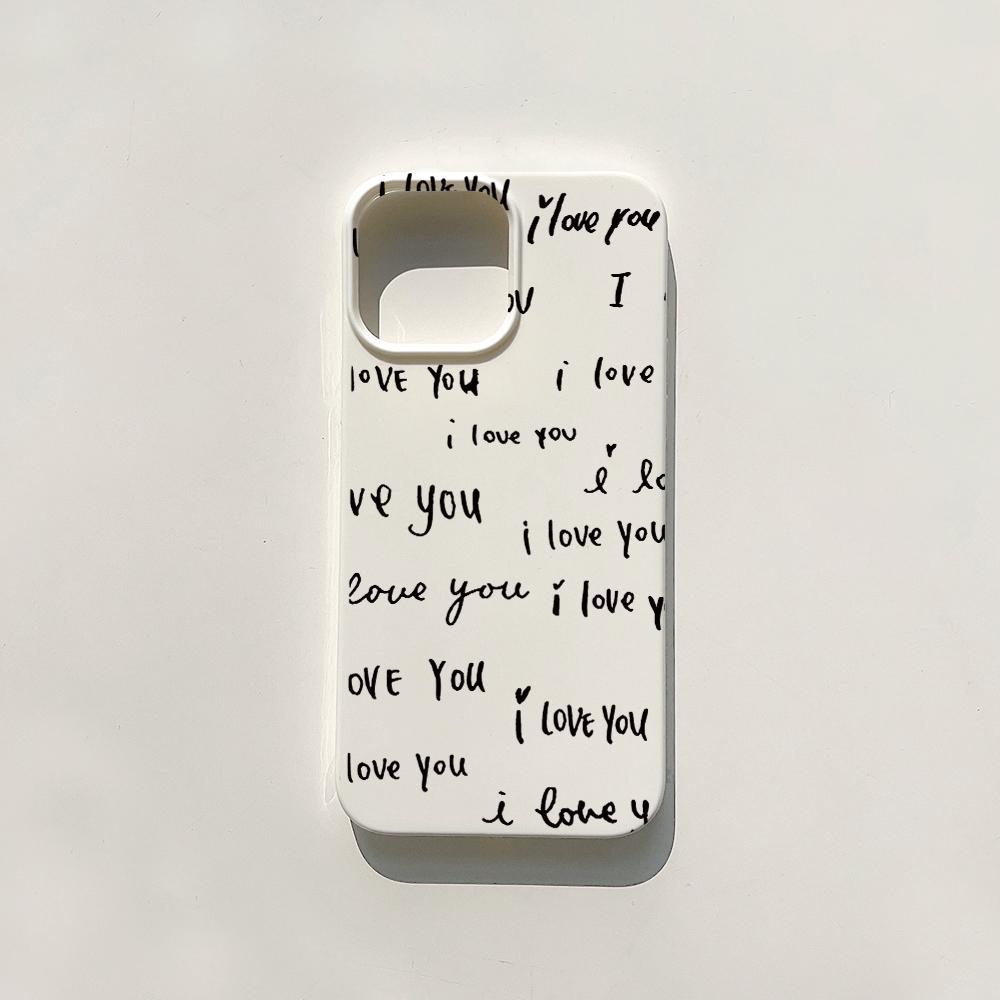 i love you
i love you
I
love you
i love
i love you
ve you
i love you
love you
i love y
ove you
i love you
love you
i love y